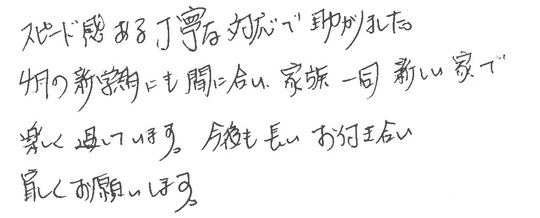 スピード感ある丁寧な対応で助かりました。
4月の新学期にも間に合い、家族一同新しい家で
楽しく過しています。今後も長いお付き合い
宜しくお願いします。